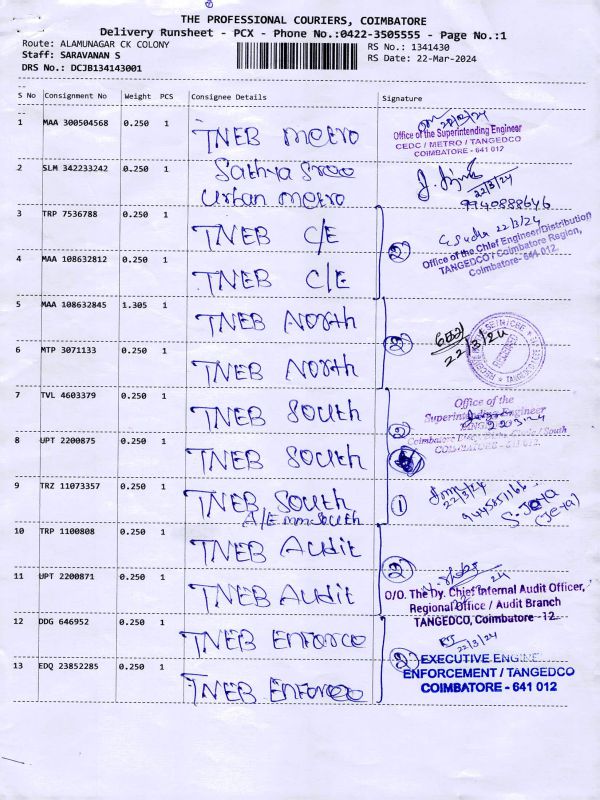 THE PROFESSIONAL COURIERS, COIMBATORE
Delivery Runsheet - PCX - Phone No.:0422-3505555 - Page No.:1
Route: ALAMUNAGAR CK COLONY
RS No.: 1341430
Staff: SARAVANAN S
RS Date: 22-Mar-2024
DRS No.: DCJB134143001
S No Consignment No Weight PCS Consignee Details Signature
1 MAA 300504568 0.250 1 TNEB Metro
Office of the Superintending Engineer
CEDC / METRO / TANGEDCO
COIMBATORE - 641 012
2 SLM 342233242 0.250 1 Sathya Sree
Urban metro
22/3/24
9940888646
3 TRP 7536788 0.250 1 TNEB C/E
22/3/24
4 MAA 108632812 0.250 1 TNEB C/E
2
Office of the Chief Engineer/Distribution
TANGEDCO / Coimbatore Region,
Coimbatore- 641 012.
5 MAA 108632845 1.305 1 TNEB North
6 MTP 3071133 0.250 1 TNEB North
2
22/3/24
7 TVL 4603379 0.250 1 TNEB South
8 UPT 2200875 0.250 1 TNEB South
2
Office of the
Superintending Engineer
9 TRZ 11073357 0.250 1 TNEB South
A/E mm South
1
22/3/24
S. Jeya
(Jeya)
10 TRP 1100808 0.250 1 TNEB Audit
11 UPT 2200871 0.250 1 TNEB Audit
2
O/O. The Dy. Chief Internal Audit Officer,
Regional Office / Audit Branch
TANGEDCO, Coimbatore -12.
12 DDG 646952 0.250 1 TNEB Enforce
22/3/24
13 EDQ 23852285 0.250 1 TNEB Enforce
2
EXECUTIVE ENGINE
ENFORCEMENT / TANGEDCO
COIMBATORE - 641 012